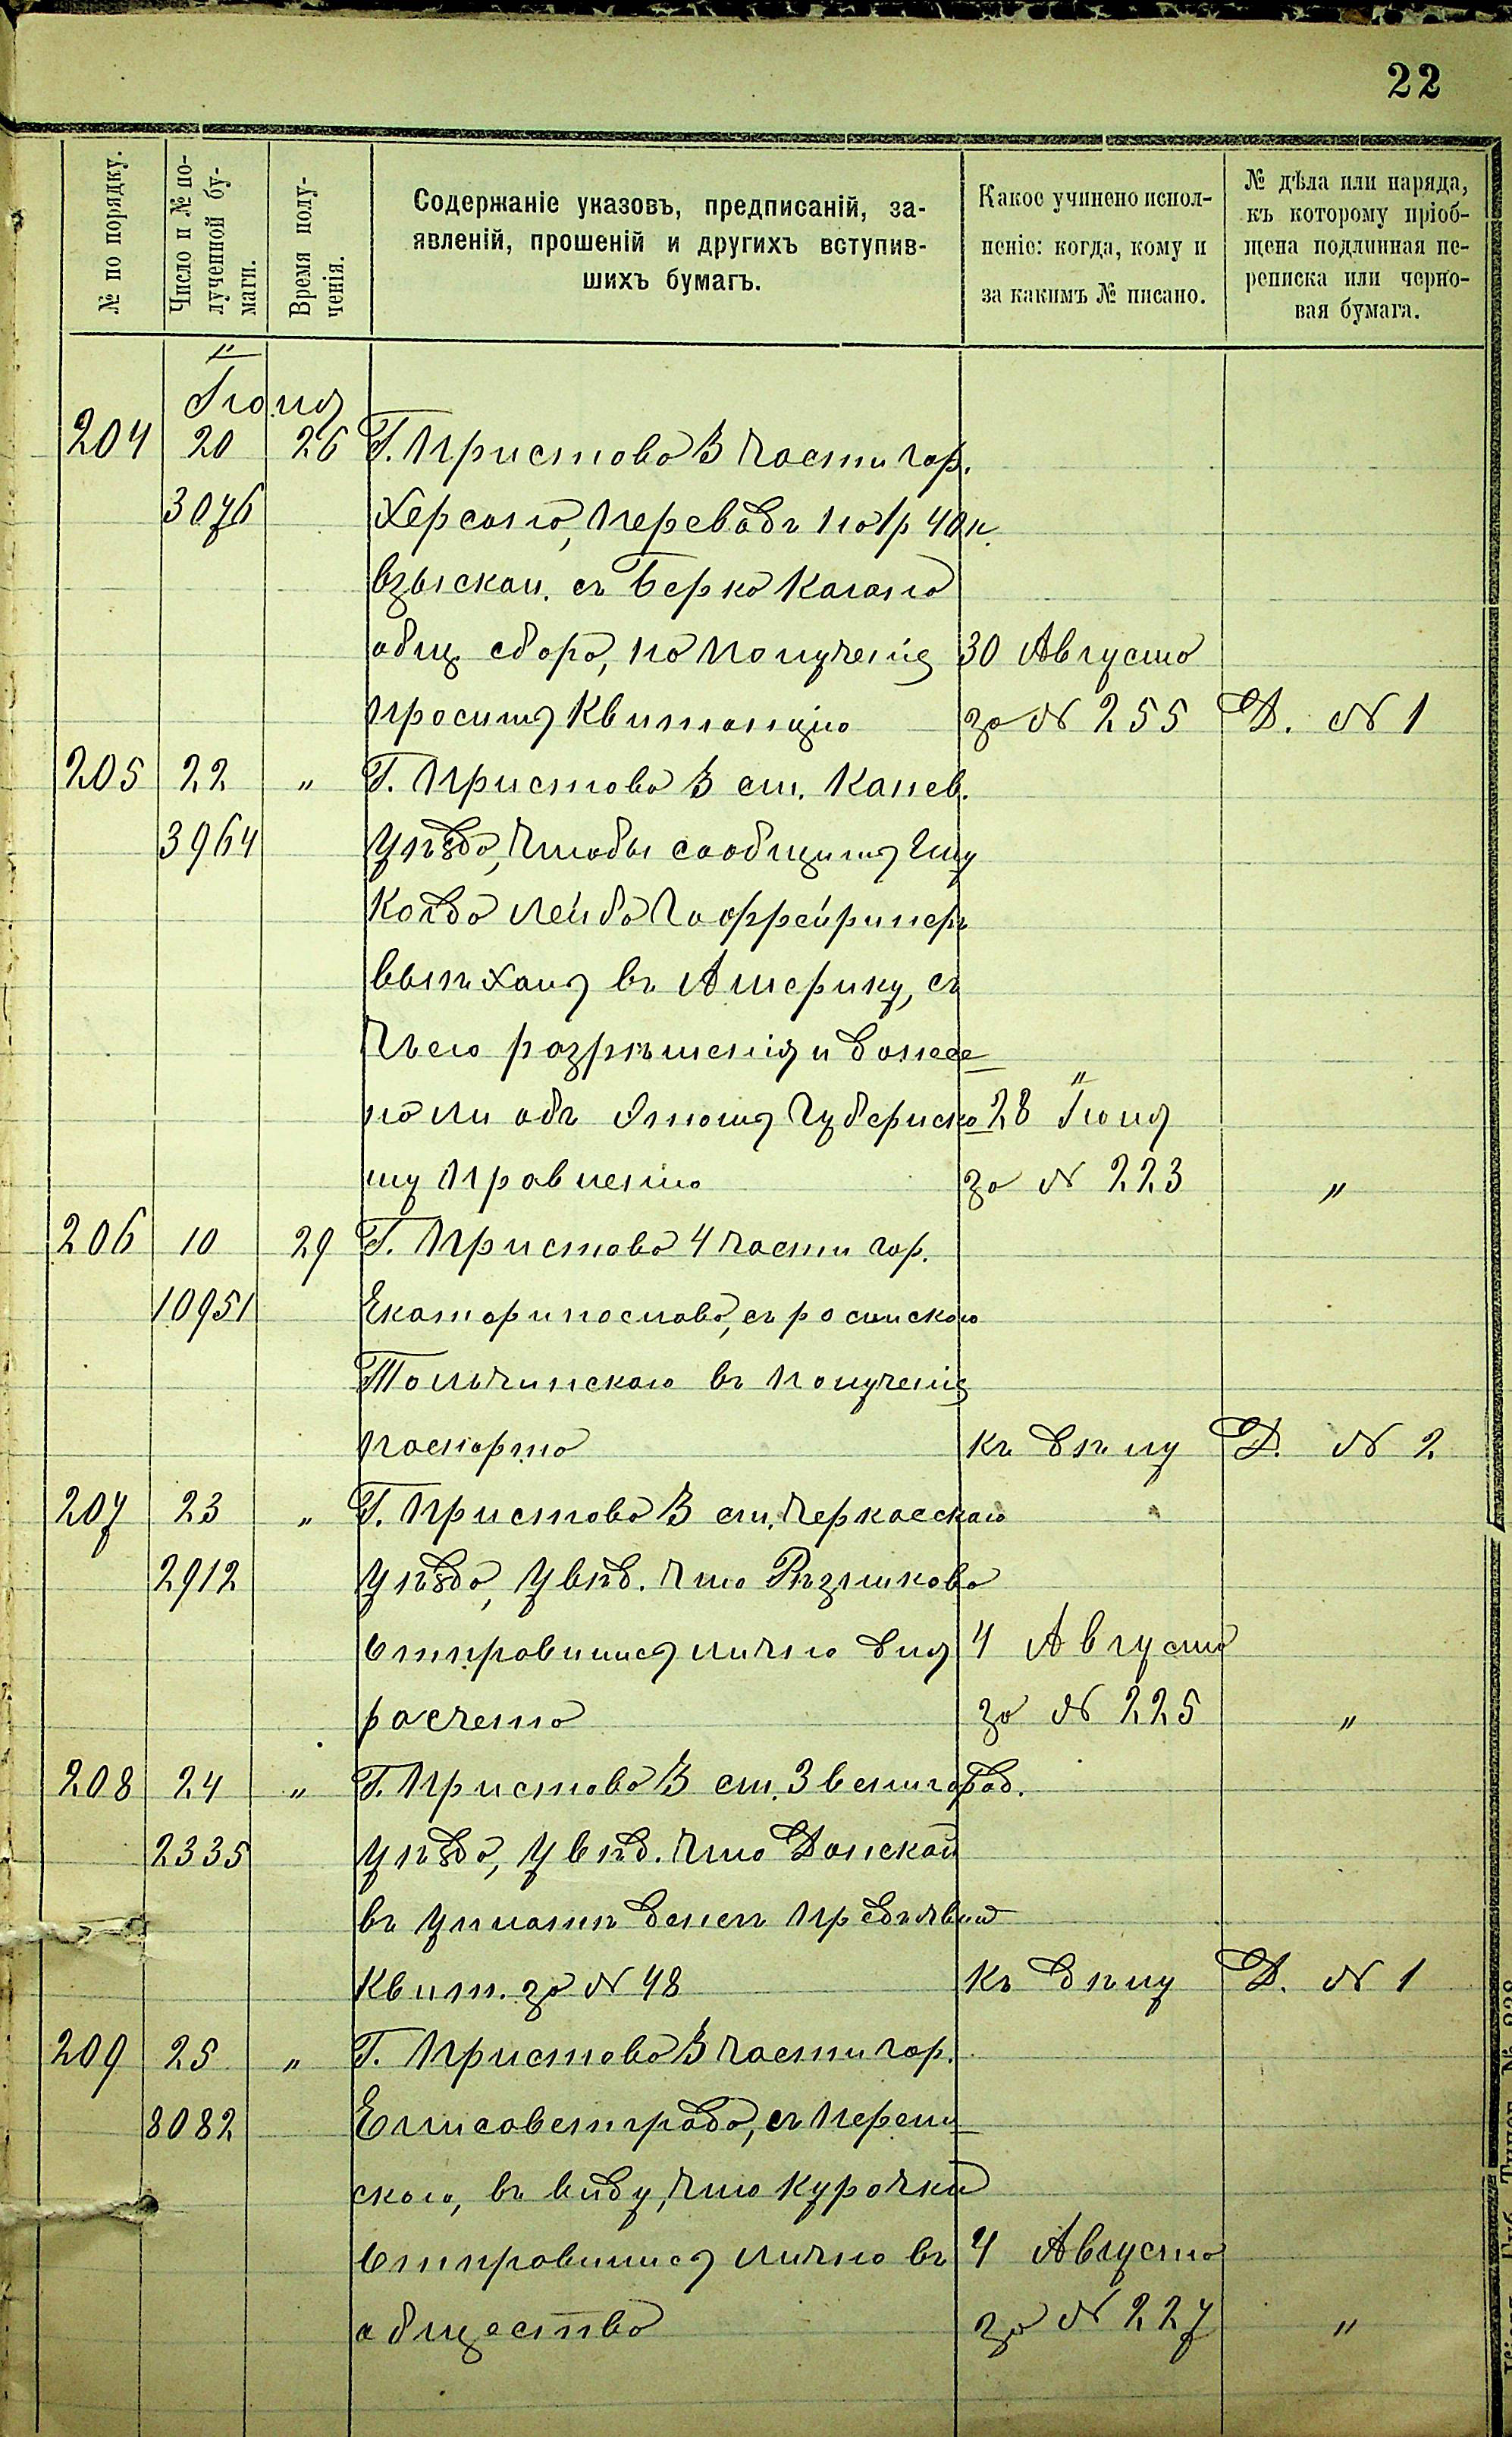 22
№ по порядку.
Число и № по-
лученной бу-
маги.
Время полу-
ченія.
Содержаніе указовъ, предписаній, за-
явленій, прошеній и другихъ вступив-
шихъ бумагъ.
Какое учинено испол-
неніе: когда, кому и
за какимъ № писано.
№ дѣла или наряда,
къ которому пріоб-
щена подлинная пе-
реписка или черно-
вая бумага.
Іюня
204 20 26 Г. Пристава 3 части гор.
3076 Херсона, переводъ на 1р 40к.
взыскан. съ Берка Кагана
общ сбора, на полученія 30 Августа
проситъ квитанцію за № 255 Д. № 1
205 22 " Г. Пристава 3 ст. Канев.
3964 уѣзда, чтобы сообщить ему
когда Лейба
выѣхалъ въ Америку, съ
чьего разрѣшенія и донесе
но ли объ этомъ Губернско 28 Іюня
му Правленію за № 223 "
206 10 29 Г. Пристава 4 части гор.
10951 Екатеринослава, съ роспискою
Тольчинскаго въ полученія
паспорта къ дѣлу Д. № 2
207 23 " Г. Пристава 3 ст. Черкасскаго
2912 уѣзда, увѣд. что Рѣзникова
отправился лично для 4 Августа
расчета за № 225 "
208 24 " Г. Пристава 3 ст. Звенигород.
2335 уѣзда, увѣд. что Донской
въ уплатѣ денегъ предъявил
квит. за № 48 къ дѣлу Д. № 1
209 25 " Г. Пристава 3 части гор.
8082 Елисаветграда, съ перепи
скою, въ виду, что Курочкин
отправился лично въ 4 Августа
общество за № 227 "